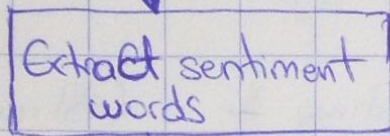 Extract sentiment
words